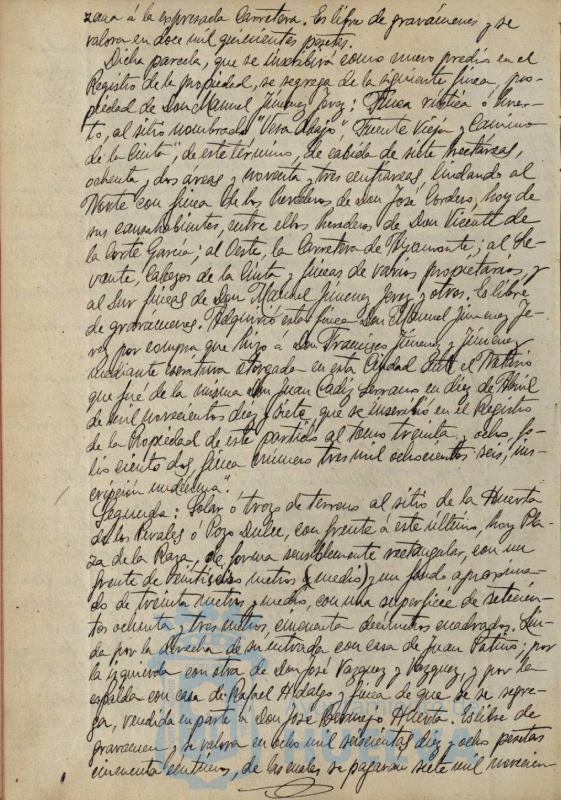 zana á la expresada Carretera. Es libre de gravámenes y se
valora en doce mil quinientas pesetas.
Dicha parcela, que se inscribirá como nuevo predio en el
Registro de la propiedad, se segrega de la siguiente finca, pro-
piedad de Don Manuel Jiménez Jerez: Finca rústica ó huer-
to, al sitio nombrado "Vera Abajo", "Fuente Vieja y Camino
de la Cinta", de este término, de cabida de siete hectáreas,
ochenta y dos areas y noventa y tres centiareas, lindando al
Norte con finca de los herederos de Don José Cordero, hoy de
sus causahabientes, entre ellos herederos de Don Vicente de
la Corte García; al Oeste, la Carretera de Ayamonte; al Le-
vante, Cabezos de la Cinta y fincas de varios propietarios, y
al Sur fincas de Don Manuel Jimenez Jerez y otros. Es libre
de gravamenes. Adquirió esta finca Don Manuel Jimenez Je-
rez por compra que hizo á Don Francisco Jimenez y Jimenez
mediante escritura otorgada en esta Ciudad ante el Notario
que fué de la misma Don Juan Cadiz Serrano en diez de Abril
de mil novecientos diez y siete, que se inscribió en el Registro
de la Propiedad de este partido al tomo treinta y ocho, fo-
lio ciento dos, finca número tres mil ochocientos seis, ins-
cripción undécima".
Segunda: Solar ó trozo de terreno al sitio de la Huerta
de los Perales ó Pozo Dulce, con frente á este último, hoy Pla-
za de la Raza, de forma sensiblemente rectangular, con un
frente de veintiséis metros y medio y un fondo aproxima-
do de treinta metros y medio, con una superficie de setecien-
tos ochenta y tres metros, cincuenta decimetros cuadrados. Lin-
da por la derecha de su entrada con casa de Juan Patiño; por
la izquierda con otra de Don José Vazquez y Vazquez, y por la
espalda con casa de Rafael Hidalgo y finca de que se se segre-
ga, vendida en parte á Don José Bermejo Huerta. Es libre de
gravamen y se valora en ocho mil seiscientas diez y ocho pesetas
cincuenta centimos, de las cuales se pagaran siete mil novecien-
Ayuntamiento de